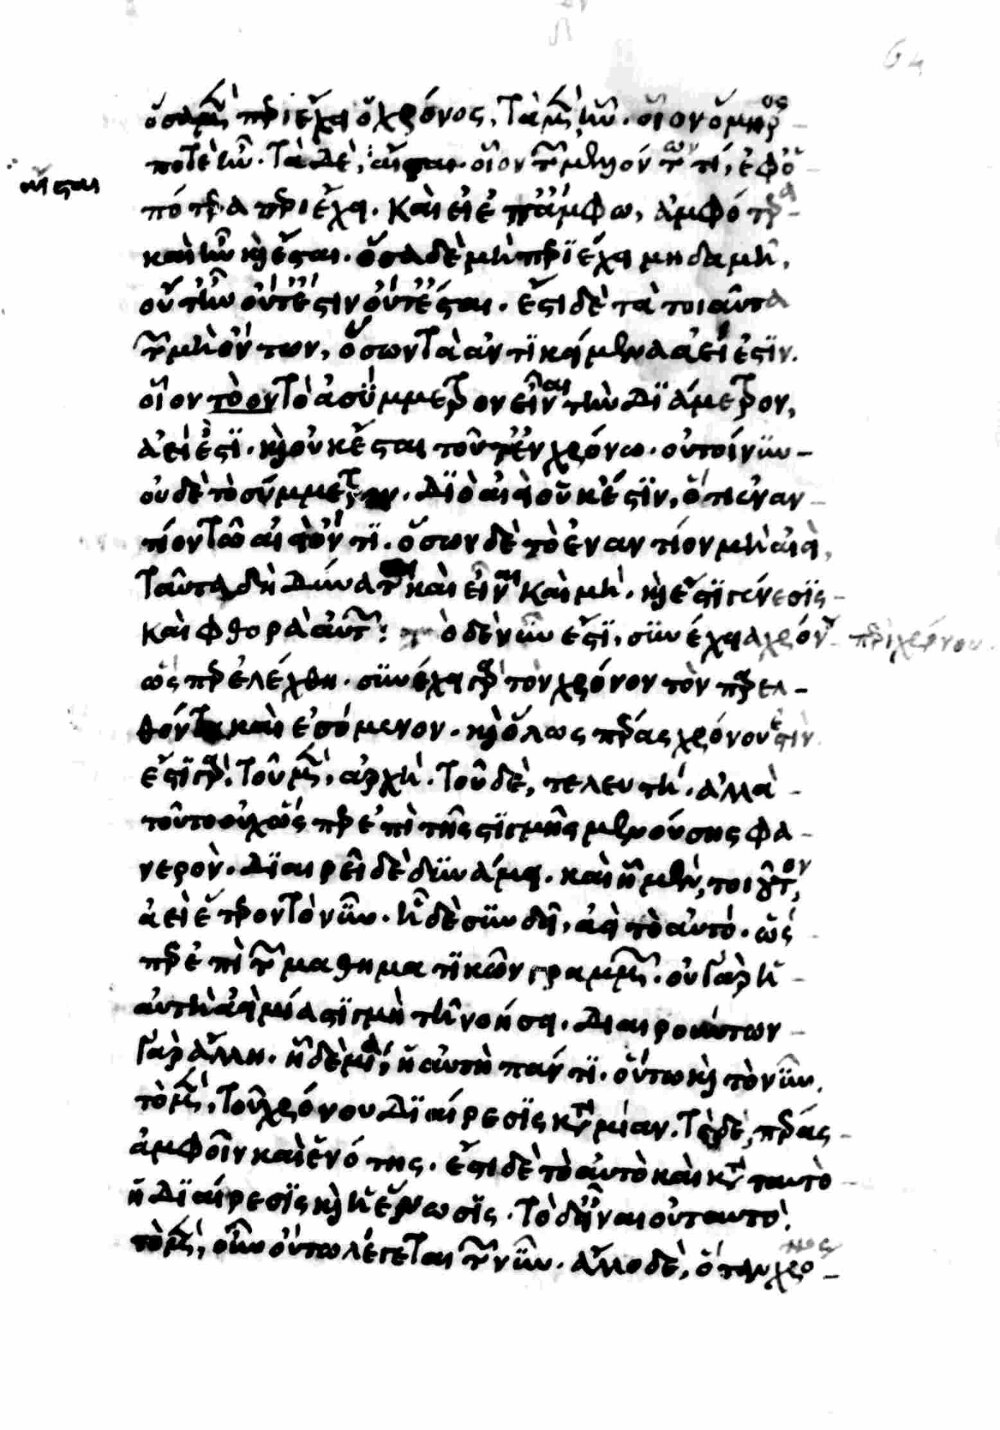 64
ὅσα μὲν περιέχει ὁ χρόνος, τὰ μὲν ἦν. οἷον ὅμηρος
ποτὲ ἦν. τὰ δὲ, ἔσται. οἷον τῶν μελλόντων τί, ἐφ' ὃ
ἔσται
πότερα περιέχει. καὶ εἰ ἐπ' ἄμφω, ἀμφότερα
καὶ ἦν καὶ ἔσται. ὅσα δὲ μὴ περιέχει μηδαμῆ,
οὔτ' ἦν οὔτ' ἔστιν οὔτ' ἔσται. ἔστι δὲ τὰ τοιαῦτα
τῶν μὴ ὄντων, ὅσων τὰ ἀντικείμενα ἀεί ἐστιν.
οἷον τὸ ον τὸ ἀσύμμετρον εἶναι τὴν διάμετρον,
ἀεί ἐστι. καὶ οὐκ ἔσται τοῦτ' ἐν χρόνω. οὐ τοίνυν
οὐδὲ τὸ σύμμετρον. διὸ αἰεὶ οὐκ ἔστιν, ὅτι ἐναν
τίον τῶ αἰεὶ ὄντι. ὅσων δὲ τὸ ἐναντίον μὴ αἰεὶ,
ταῦτα δὴ δύναται καὶ εἶναι καὶ μή. καὶ ἔστι γένεσις
καὶ φθορὰ αὐτῶν: ὸ δὲ νῦν ἔστι, συνέχεια χρόνου περὶ χρόνου
ὥσπερ ἐλέχθη. συνέχει γὰρ τὸν χρόνον τὸν παρελ
θόντα καὶ ἐσόμενον. καὶ ὅλως πέρας χρόνου ἐστίν
ἔστι γὰρ τοῦ μὲν, ἀρχή. τοῦ δὲ, τελευτή. ἀλλὰ
τοῦτο οὐχ ὥσπερ ἐπὶ τῆς στιγμῆς μενούσης φα
νερὸν. διαιρεῖ δὲ δυνάμει. καὶ ἧ μὲν, τοιοῦτον,
ἀεὶ ἕτερον τὸ νῦν. ἧ δὲ συνδεῖ, ἀεὶ τὸ αὐτό. ὥς
περ ἐπὶ τῶν μαθηματικῶν γραμμῶν. οὐ γὰρ ἡ
αὐτὴ ἀεὶ μία στιγμὴ τῆ νοήσει. διαιρούντων
γὰρ ἄλλη. ἧ δὲ μία, ἡ αὐτὴ πάντη. οὕτω καὶ τὸ νῦν.
τὸ μὲν, τοῦ χρόνου διαίρεσις κατὰ δύναμιν. τὸ δὲ, πέρας
ἀμφοῖν καὶ ἑνότης. ἔστι δὲ τὸ αὐτὸ καὶ κατὰ ταυτὸ
ἡ διαίρεσις καὶ ἡ ἕνωσις. τὸ δ' εἶναι οὐ ταυτό.
τὸ μὲν, οὖν οὕτω λέγεται τῶν νῦν. ἄλλο δὲ, ὅταν χρόνος